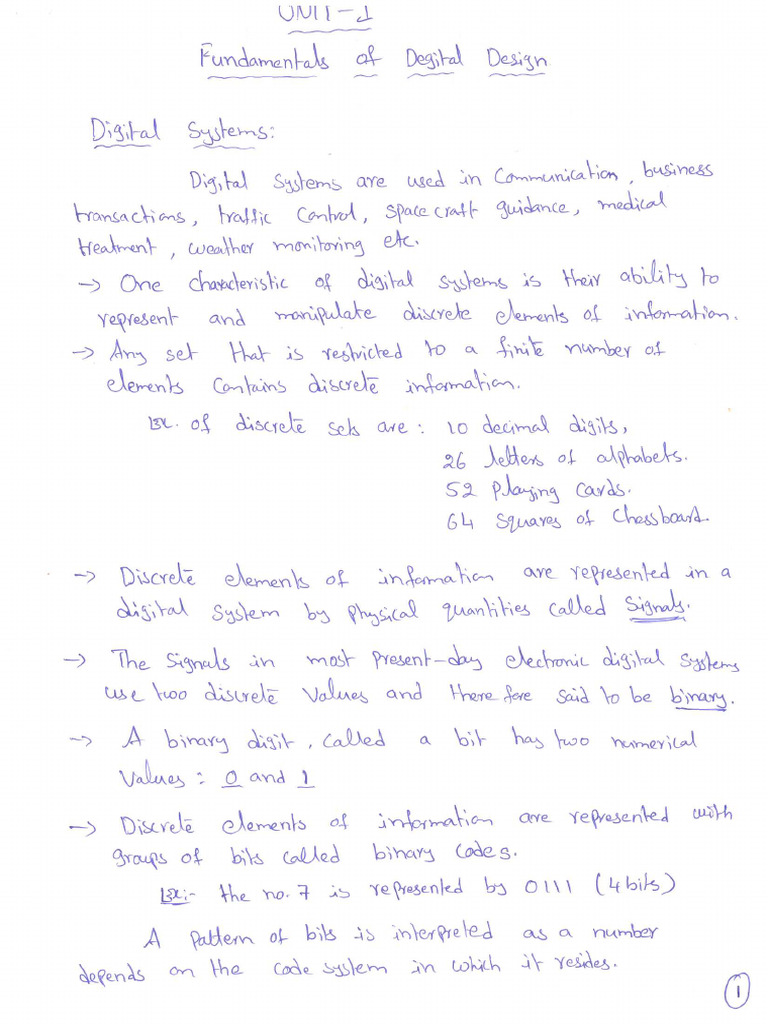 UNIT-1
Fundamentals of Degital Design
Digital Systems:
Digital Systems are used in Communication, business
transactions, traffic Control, spacecraft guidance, medical
treatment, weather monitoring etc.
→ One characteristic of digital systems is their ability to
represent and manipulate discrete elements of information.
→ Any set that is restricted to a finite number of
elements contains discrete information.
Ex. of discrete sets are: 10 decimal digits,
26 letters of alphabets.
52 Playing Cards.
64 Squares of Chessboard.
→ Discrete elements of information are represented in a
digital System by physical quantities called Signals.
→ The Signals in most present-day electronic digital systems
use two discrete Values and therefore said to be binary.
→ A binary digit, called a bit has two numerical
Values: 0 and 1
→ Discrete elements of information are represented with
groups of bits called binary Codes.
Ex:- the no. 7 is represented by 0111 (4 bits)
A pattern of bits is interpreted as a number
depends on the code system in which it resides.
1